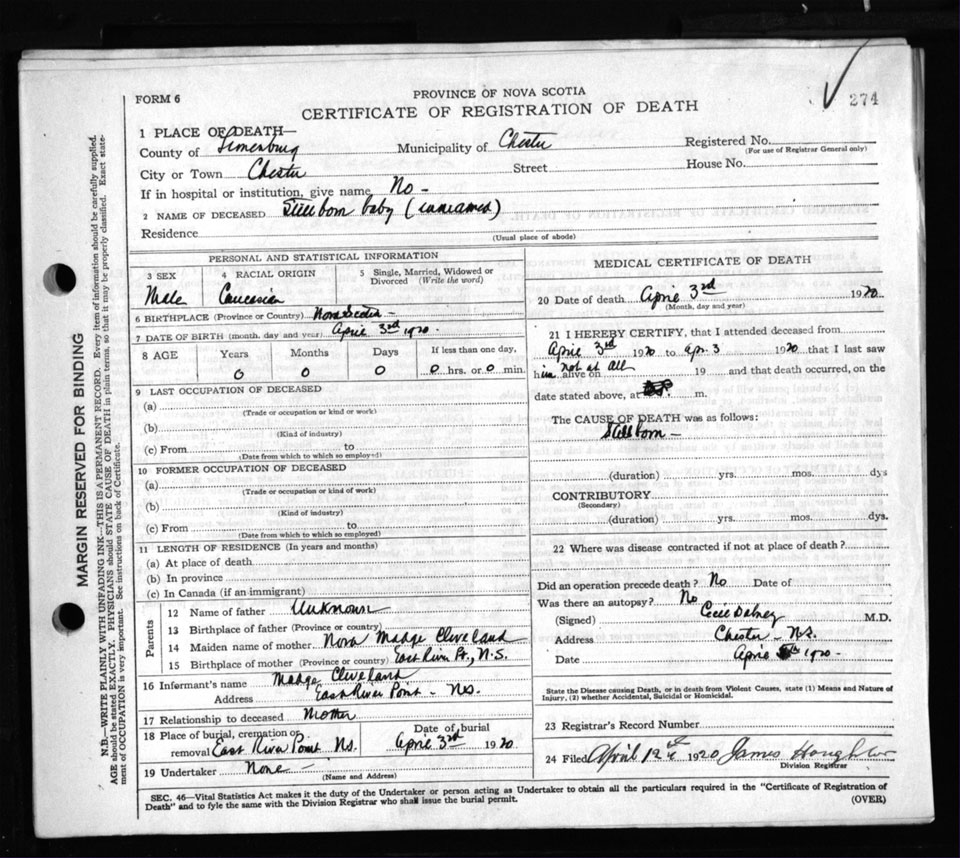 274
FORM 6
PROVINCE OF NOVA SCOTIA
CERTIFICATE OF REGISTRATION OF DEATH
1 PLACE OF DEATH—
County of Lunenburg Municipality of Chester Registered No.
(For use of Registrar General only)
City or Town Chester Street House No.
If in hospital or institution, give name No -
2 NAME OF DECEASED Stillborn baby (unnamed)
Residence
(Usual place of abode)
PERSONAL AND STATISTICAL INFORMATION
3 SEX 4 RACIAL ORIGIN 5 Single, Married, Widowed or
Divorced (Write the word)
Male Caucasian
6 BIRTHPLACE (Province or Country) Nova Scotia -
7 DATE OF BIRTH (month, day and year) April 3rd 1920 -
8 AGE Years Months Days If less than one day,
0 0 0 0 hrs. or 0 min.
9 LAST OCCUPATION OF DECEASED
(a)
(Trade or occupation or kind or work)
(b)
(Kind of industry)
(c) From to
(Date from which to which so employed)
10 FORMER OCCUPATION OF DECEASED
(a)
(Trade or occupation or kind of work)
(b)
(Kind of industry)
(c) From to
(Date from which to which so employed)
11 LENGTH OF RESIDENCE (In years and months)
(a) At place of death
(b) In province
(c) In Canada (if an immigrant)
Parents
12 Name of father Unknown
13 Birthplace of father (Province or country)
14 Maiden name of mother Nova Madge Cleveland
15 Birthplace of mother (Province or country) East River Pt., N.S.
16 Informant's name Madge Cleveland
Address East River Point - N.S.
17 Relationship to deceased Mother
18 Place of burial, cremation or Date of burial
removal East River Point N.S. April 3rd 1920
19 Undertaker None -
(Name and Address)
MEDICAL CERTIFICATE OF DEATH
20 Date of death April 3rd 1920
(Month, day and year)
21 I HEREBY CERTIFY, that I attended deceased from
April 3rd 1920 to Apr. 3 1920 that I last saw
him alive on not at all 19 and that death occurred, on the
date stated above, at m.
The CAUSE OF DEATH was as follows:
Stillborn -
(duration) yrs. mos. dys
CONTRIBUTORY
(Secondary)
(duration) yrs. mos. dys.
22 Where was disease contracted if not at place of death?
Did an operation precede death? No Date of
Was there an autopsy? No
(Signed) M.D.
Address Chester - N.S.
Date April 1920 -
State the Disease causing Death, or in death from Violent Causes, state (1) Means and Nature of
Injury, (2) whether Accidental, Suicidal or Homicidal.
23 Registrar's Record Number
24 Filed April 12th 1920 James
Division Registrar
SEC. 46—Vital Statistics Act makes it the duty of the Undertaker or person acting as Undertaker to obtain all the particulars required in the "Certificate of Registration of
Death" and to fyle the same with the Division Registrar who shall issue the burial permit.
(OVER)
MARGIN RESERVED FOR BINDING
N.B.—WRITE PLAINLY WITH UNFADING INK—THIS IS A PERMANENT RECORD. Every item of information should be carefully supplied.
AGE should be stated EXACTLY. PHYSICIANS should STATE CAUSE OF DEATH in plain terms, so that it may be properly classified. Exact state-
ment of OCCUPATION is very important. See instructions on back of Certificate.